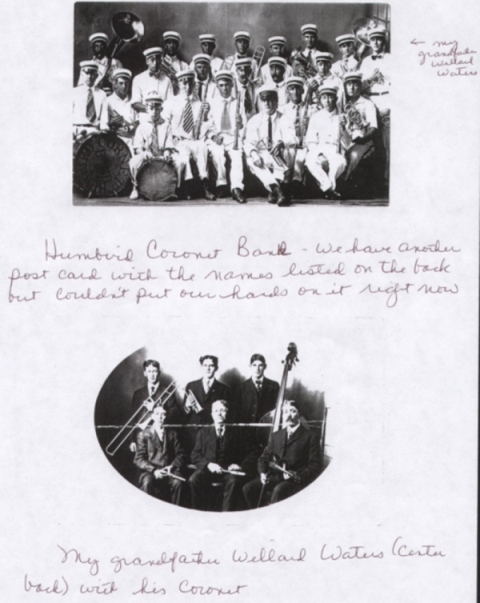 ← my
grandfather
Wellard
Waters
Humbird Coronet Band - We have another
post card with the names listed on the back
but couldn't put our hands on it right now
My grandfather Wellard Waters (Center
back) with his Coronet